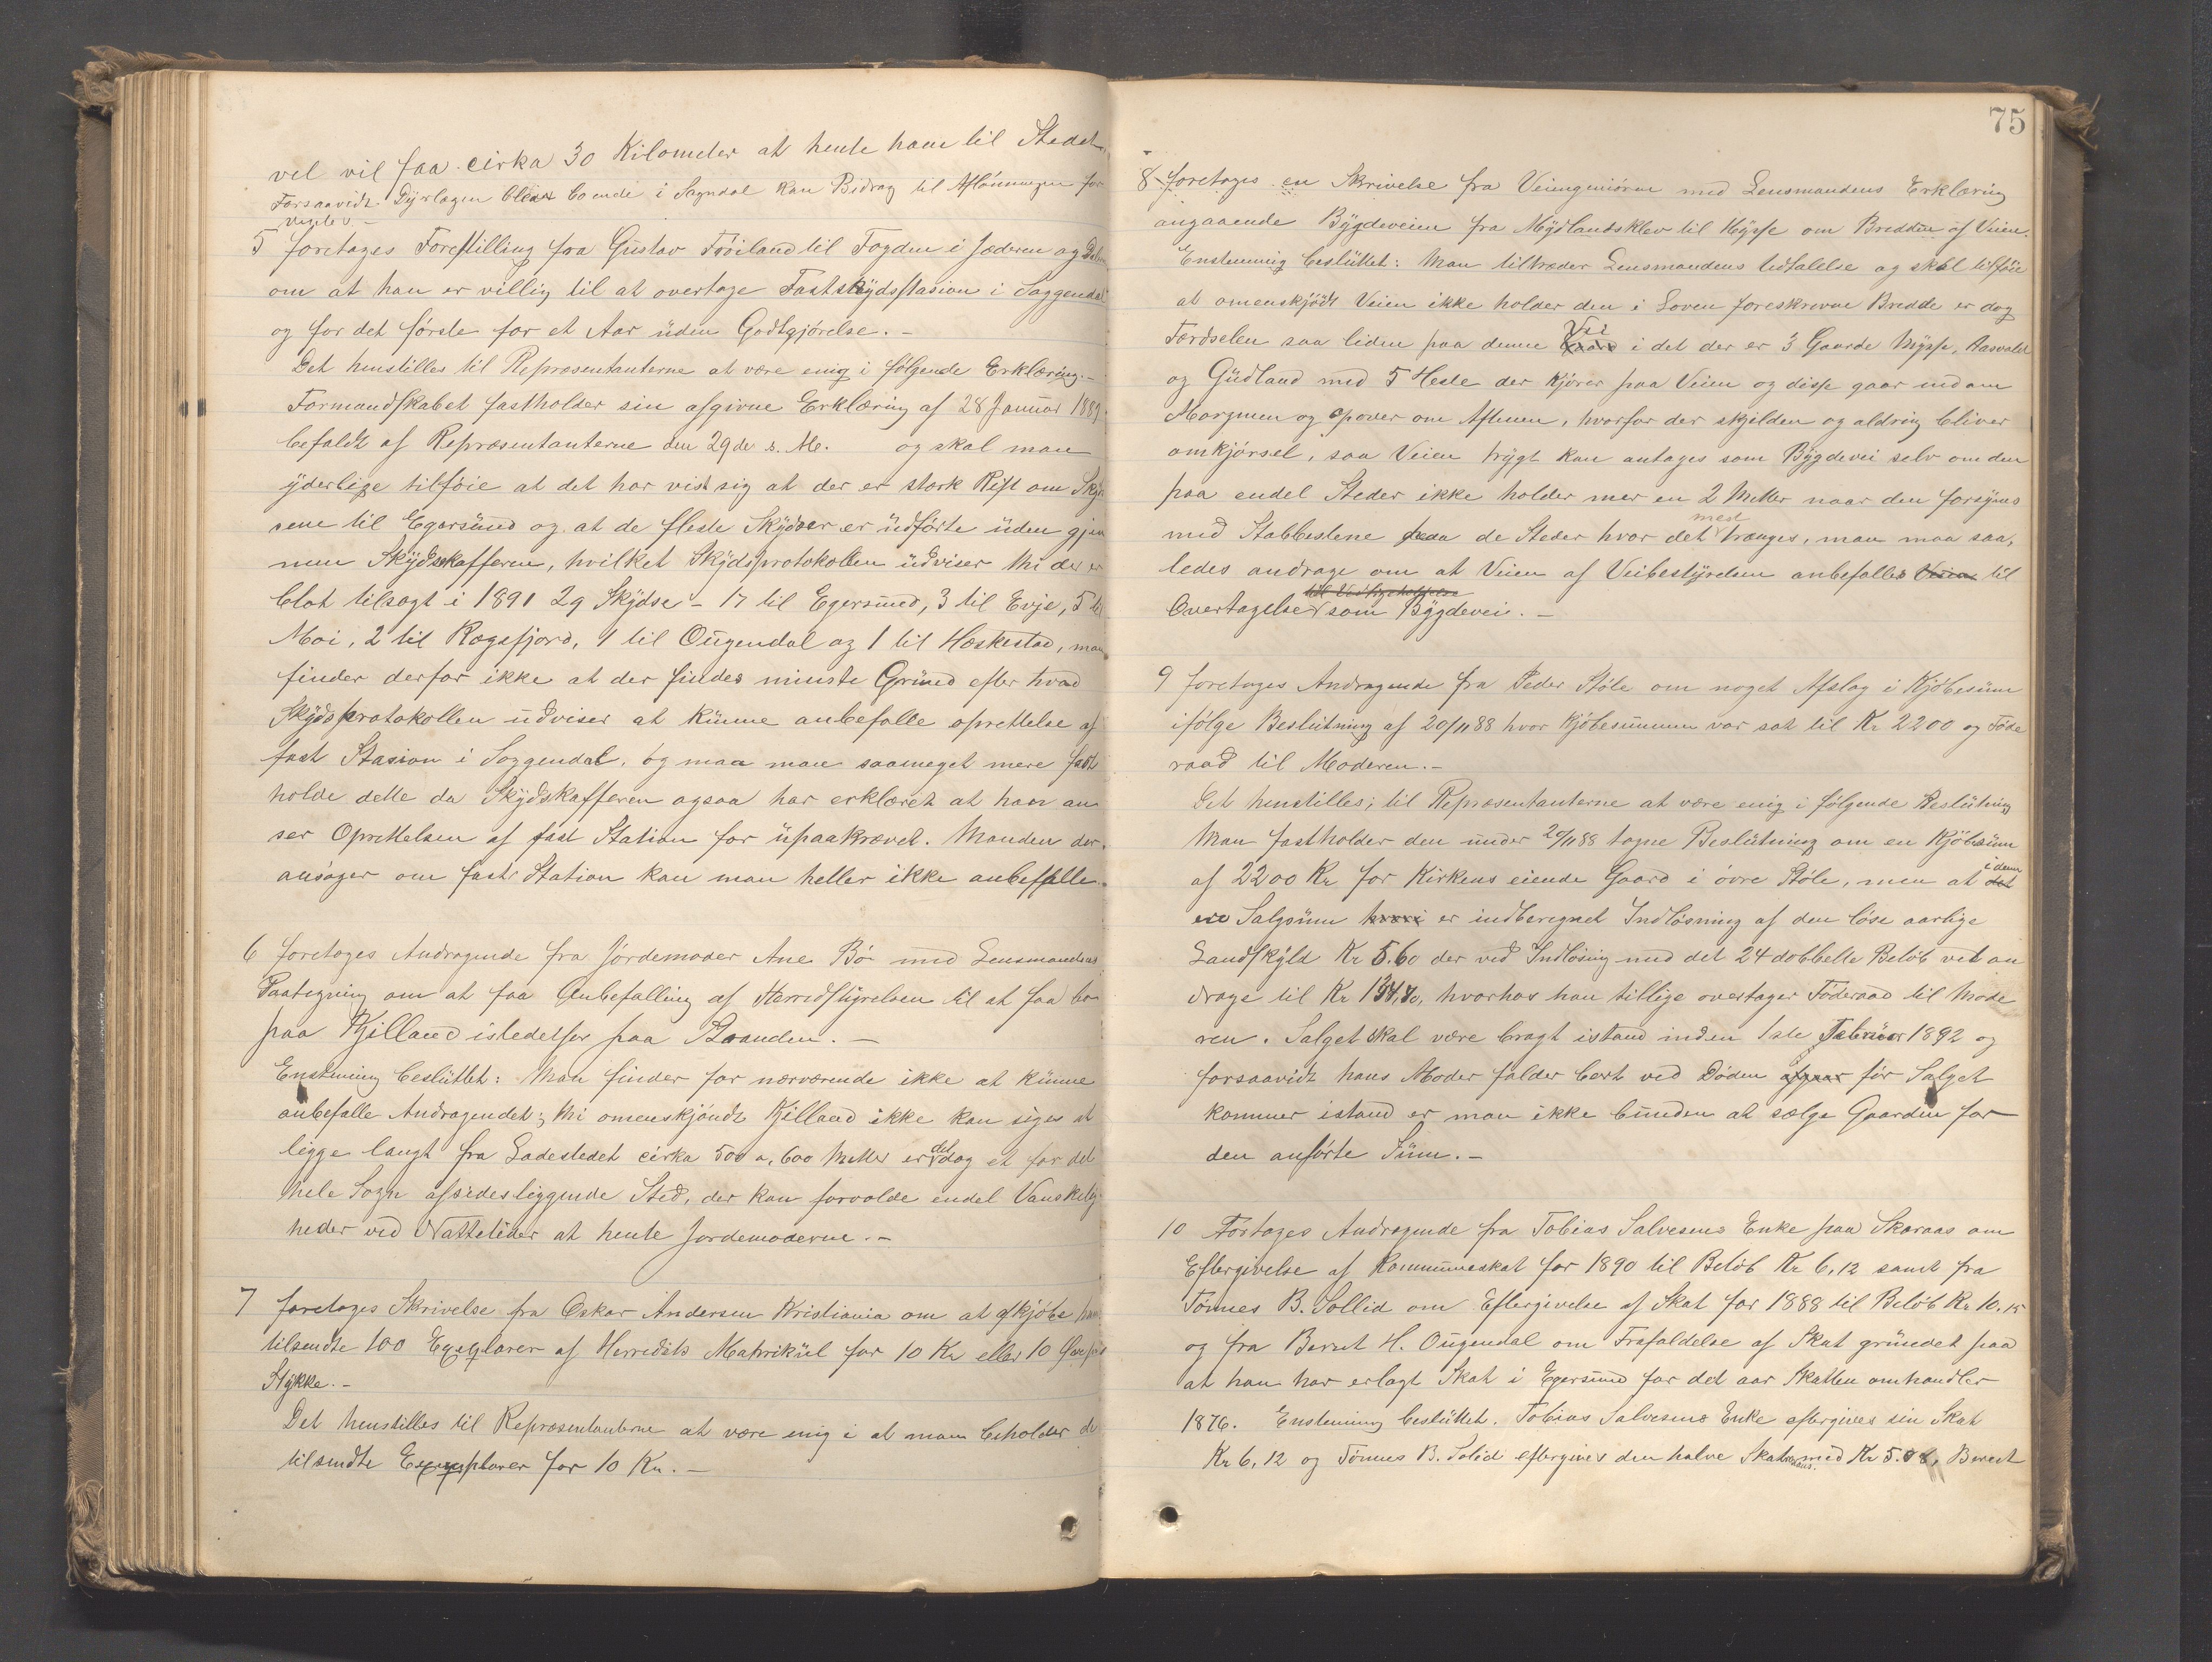 vel vil faa cirka 30 Kilometer at hente ham til Stedet.
Forsaavidt Dyrlægen bliver boende i Sogndal kan Bidrag til Aflønningen for
5 foretages Forestilling fra Gustav Frøiland til Fogden i Jæderen og Dalene
om at han er villig til at overtage Fastskydsstasion i Soggendal
og for det første for et Aar uden Godtgjørelse. –
Det henstilles til Repræsentanterne at være enig i følgende Erklæring. –
Formandskabet fastholder sin afgivne Erklæring af 28 Januar 1889
befaldt af Repræsentanterne den 29de s. M. og skal man
yderlige tilføie at det har vist sig at der er stærk Rift om Skyd
sene til Egersund og at de fleste Skydser er udførte uden gjen
nem Skydsskafferen, hvilket Skydsprotokollen udviser thi der er
blot tilsagt i 1891 29 Skydse – 17 til Egersund, 3 til Evje, 5 til
Moi, 2 til Rægefjord, 1 til Ougendal og 1 til Hæskestad, man
finder derfor ikke at der findes minste Grund efter hvad
Skydsprotokollen udviser at kunne anbefalle oprettelse af
fast Stasion i Soggendal, og maa man saameget mere fast
holde dette da Skydskafferen ogsaa har erklæret at han an
ser Oprettelsen af fast Station for upaakrævet. Manden der
ansøger om fast Station kan man heller ikke anbefalle.
6 foretages Andragende fra Jordemoder Ane Bø med Lensmandens
Paategning om at faa Anbefalling af Herredstyrelsen til at faa bo
paa Kjelland istedetfor paa Stranden. –
Enstemmig besluttet: Man finder for nærværende ikke at kunne
anbefalle Andragendet; thi omenskjøndt Kjelland ikke kan siges at
ligge langt fra Ladestedet cirka 500 a. 600 Metter er det dog et for det
hele Sogn afsidesliggende Sted, der kan forvolde endel Vanskelig
heder ved Nattetider at hente Jordemoderen. –
7 foretages Skrivelse fra Oskar Andersen Kristiania om at afkjøbe ham
tilsendte 100 Exemplarer af Herredets Matrikul for 10 Kr eller 10 Øre pr
Stykke. –
Det henstilles til Repræsentanterne at være enig i at man beholder de
tilsendte Exemplarer for 10 Kr. –
75
8 foretages en Skrivelse fra Veiingeniøren med Lensmandens Erklæring
angaaende Bygdeveien fra Mydlandsklev til Mysse om Bredden af Veien.
Enstemmig besluttet: Man tiltræder Lensmandens Udtalelse og skal tilføie
at omenskjødt Veien ikke holder den i Loven foreskrevne Bredde er dog
Færdselen saa liden paa denne Vei i det der er 3 Gaarde Mysse, Aasvald
og Gudland med 5 Heste der kjører paa Veien og disse gaar ned om
Morgenen og opover om Aftenen, hvorfor der skjelden og aldrig bliver
omkjørsel, saa Veien trygt kan antages som Bygdevei selv om den
paa endel Steder ikke holder mer en 2 Metter naar den forsynes
med Stabbestene paa de Steder hvor det mest trænges, man maa saa,
ledes andrage om at Veien af Veibestyrelsen anbefalles Veien til
Overtagelse til Vedligeholdelse som Bygdevei. –
9 foretages Andragende fra Peder Støle om noget Afslag i Kjøbesum
ifølge Beslutning af 20/11 88 hvor Kjøbesummen var sat til Kr 2200 og Føde
raad til Moderen. –
Det henstilles; til Repræsentanterne at være enig i følgende Beslutning
Man fastholder den under 20/11 88 tagne Beslutning om en Kjøbesum
af 2200 Kr for Kirkens eiende Gaard i øvre Støle, men at det i denn
ere Salgsum hvori er indberegnet Indløsning af den løse aarlige
Landskyld Kr 5.60 der ved Indløsing med det 24 dobbelte Beløb vil an
drage til Kr 134,40, hvorhos han tillige overtager Føderaad til Mode
ren. Salget skal være bragt istand inden 1ste Februar 1892 og
forsaavidt hans Moder falder bort ved Døden afgaar før Salget
kommer istand er man ikke bunden at sælge Gaarden for
den anførte Sum. –
10 Fortages Andragende fra Tobias Salvesens Enke paa Skaraas om
Eftergivelse af Kommuneskat for 1890 til Beløb Kr 6,12 samt fra
Tønnes B. Sollid om Eftergivelse af Skat for 1888 til Beløb Kr 10.15
og fra Berent H. Ougendal om Frafaldelse af Skat grundet paa
at han har erlagt Skat i Egersund for det aar Skatten omhandler
1876. Enstemmig besluttet. Tobias Salvesens Enke eftergives sin Skat
Kr 6,12 og Tønnes B. Solid eftergives den halve Skat med Kr 5.08, Berent